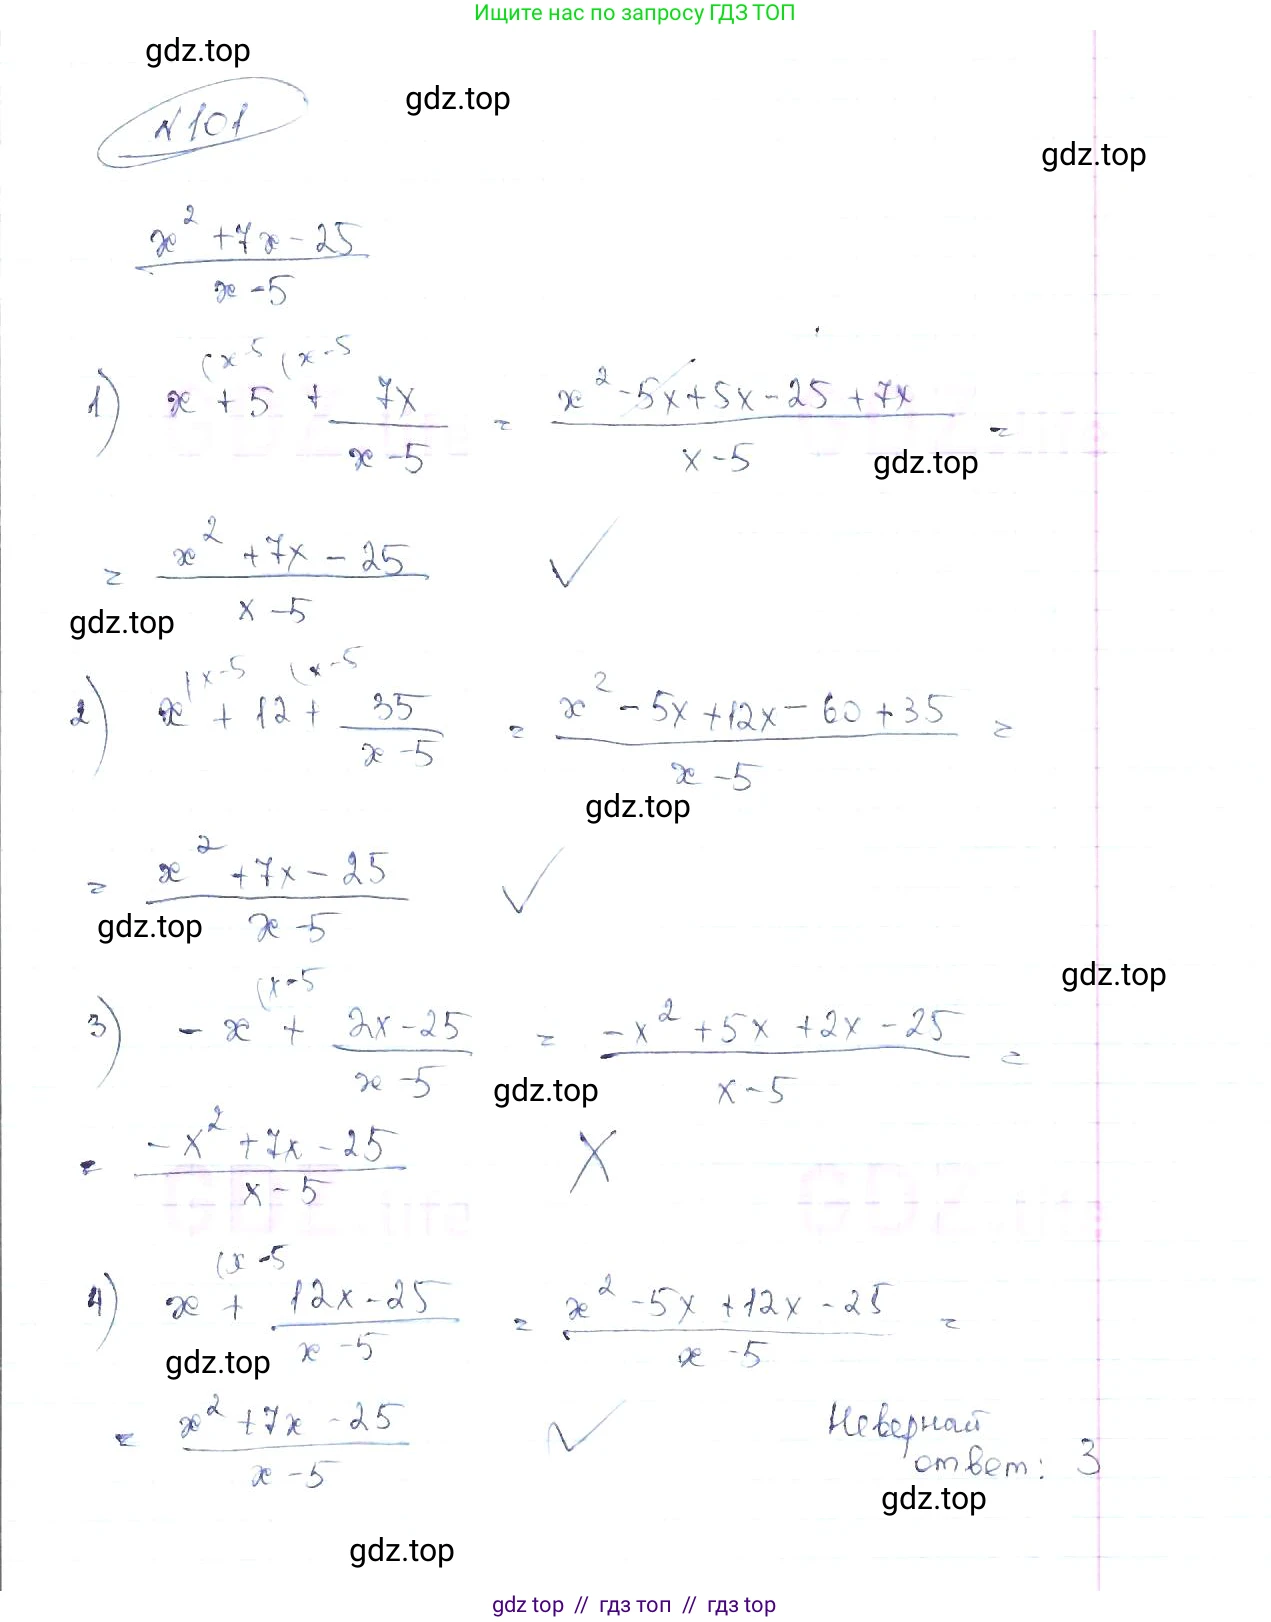 Ищите нас по запросу ГДЗ ТОП
gdz.top
gdz.top
№101
gdz.top
x² + 7x - 25
x - 5
1) x (x-5 + 5 (x-5 + 7x / x - 5 = x² - 5x + 5x - 25 + 7x / x - 5 =
gdz.top
= x² + 7x - 25 / x - 5 ✓
gdz.top
2) x (x-5 + 12 (x-5 + 35 / x - 5 = x² - 5x + 12x - 60 + 35 / x - 5 =
gdz.top
= x² + 7x - 25 / x - 5 ✓
gdz.top
gdz.top
3) - x (x-5 + 2x - 25 / x - 5 = -x² + 5x + 2x - 25 / x - 5 =
gdz.top
= -x² + 7x - 25 / x - 5 X
4) x (x-5 + 12x - 25 / x - 5 = x² - 5x + 12x - 25 / x - 5 =
gdz.top
= x² + 7x - 25 / x - 5 ✓
Неверный
ответ: 3
gdz.top
gdz.top
gdz top // гдз топ // гдз top